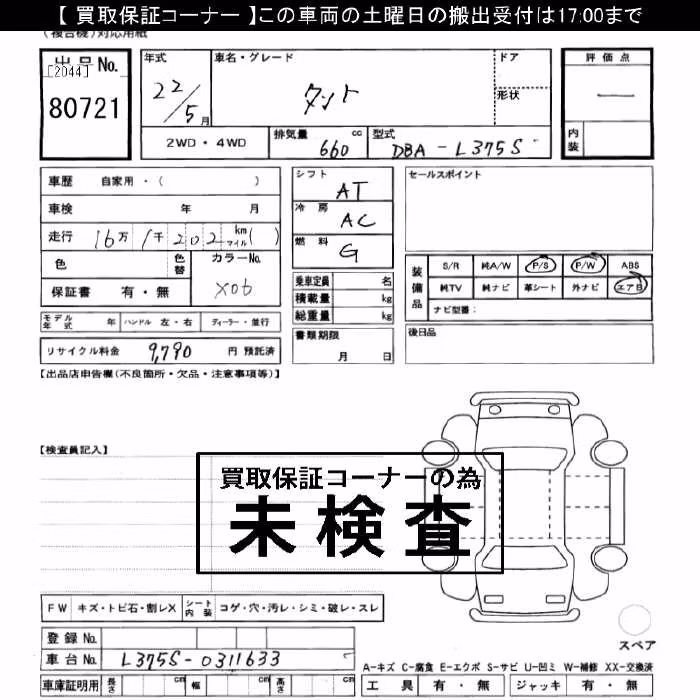 【 買取保証コーナー 】この車両の土曜日の搬出受付は17:00まで
(複合機)対応用紙
出品No.
[2044]
80721
年式
22/5月
車名・グレード
タント
ドア
形状
評価点
―
内装
2WD・4WD
排気量 660 cc
型式 DBA-L375S
車歴 自家用・( )
車検 年 月
走行 16万1千202 km マイル( )
色 色替 カラーNo.
X06
保証書 有・無
モデル年式 年 ハンドル 左・右 ディーラー・並行
リサイクル料金 9,790 円 預託済
シフト AT
冷房 AC
燃料 G
乗車定員 名
積載量 kg
総重量 kg
書類期限
月 日
セールスポイント
装備品
S/R 純A/W P/S P/W ABS
純TV 純ナビ 革シート 外ナビ エアB
ナビ型番:
後日品
【出品店申告欄(不良箇所・欠品・注意事項等)】
【検査員記入】
買取保証コーナーの為
未検査
FW キズ・トビ石・割レX シート内装 コゲ・穴・汚レ・シミ・破レ・スレ
登録No.
車台No. L375S-0311633
車庫証明用 長さ cm 幅 cm 高さ cm
スペア
A-キズ C-腐食 E-エクボ S-サビ U-凹ミ W-補修 XX-交換済
工具 有・無 ジャッキ 有・無